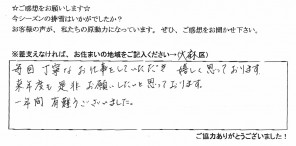 ☆ご感想をお願いします☆
今シーズンの排雪はいかがでしたか？
お客様の声が、私たちの原動力になっています。ぜひ、ご感想をお聞かせ下さい。
※差支えなければ、お住まいの地域をご記入ください→(伏古区)
毎回丁寧なお仕事をしていただき 嬉しく思っております。
来年度も是非お願いしたいと思っております。
一年間有難うございました。
ご協力ありがとうございました！